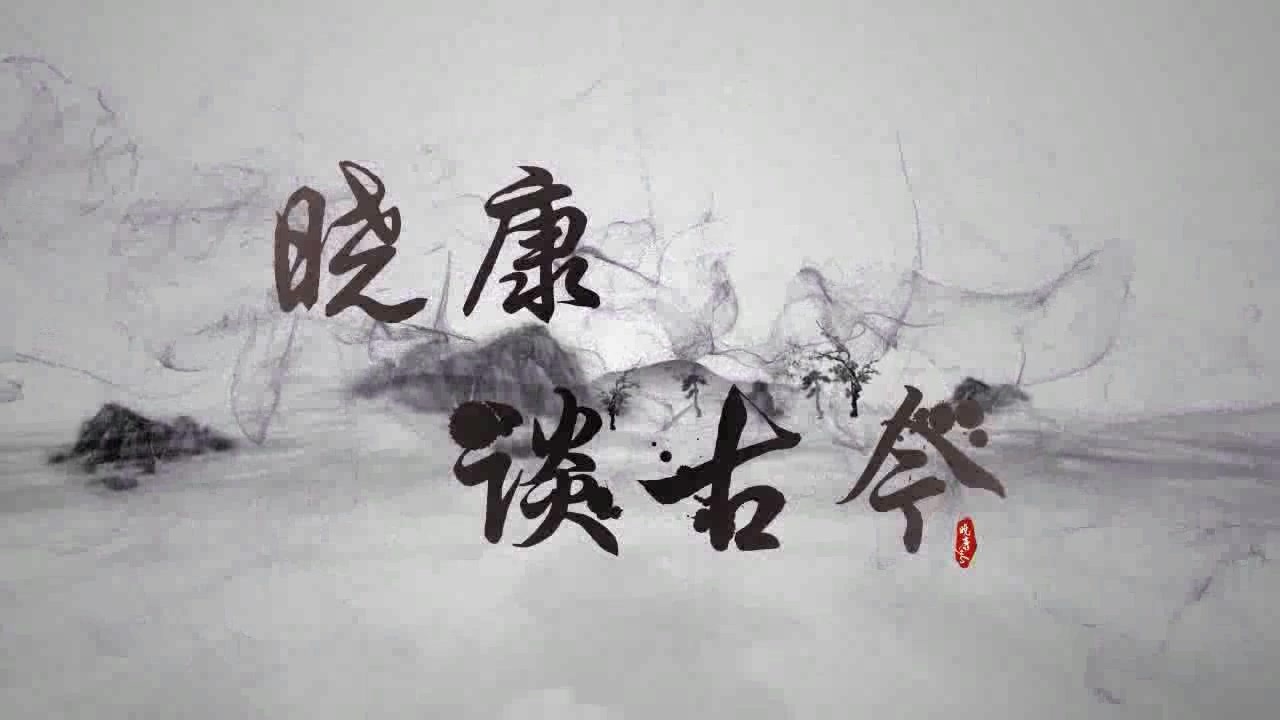 晓康
谈古今